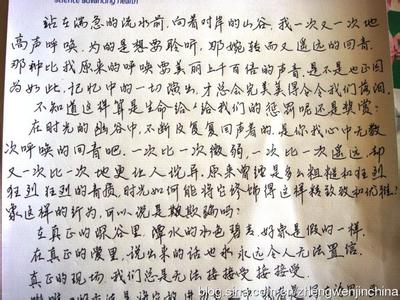 science advancing health
站在湍急的流水前，向着对岸的山谷，我一次又一次地
高声呼唤，为的是想要聆听，那婉转而又遥远的回音。
那种比我原来的呼唤要美丽上千百倍的声音，是不是也正因
为如此，记忆中的一切演出，才总会完美得令我们落泪。
不知道这样算是生命给我们的惩罚呢还是奖赏？
在时光的幽谷中，不断反复回声着的，是你我心中无数
次呼唤的回音吧，一次比一次微弱，一次比一次遥远，却
又一次比一次地更让人恍异，原来曾经是多么粗糙和狂烈
狂烈的音质，时光如何能将它修饰得这样精致
家这样的行为，可以说是欺瞒吗？
在真正的幽谷里，潭水的水色碧
好象是假的一样。
在真正的爱里，说出来的话也
永远令人无法置信。
真正的现场，我们总是无法接受
blog.sina.com.cn/zhengwenjinchina